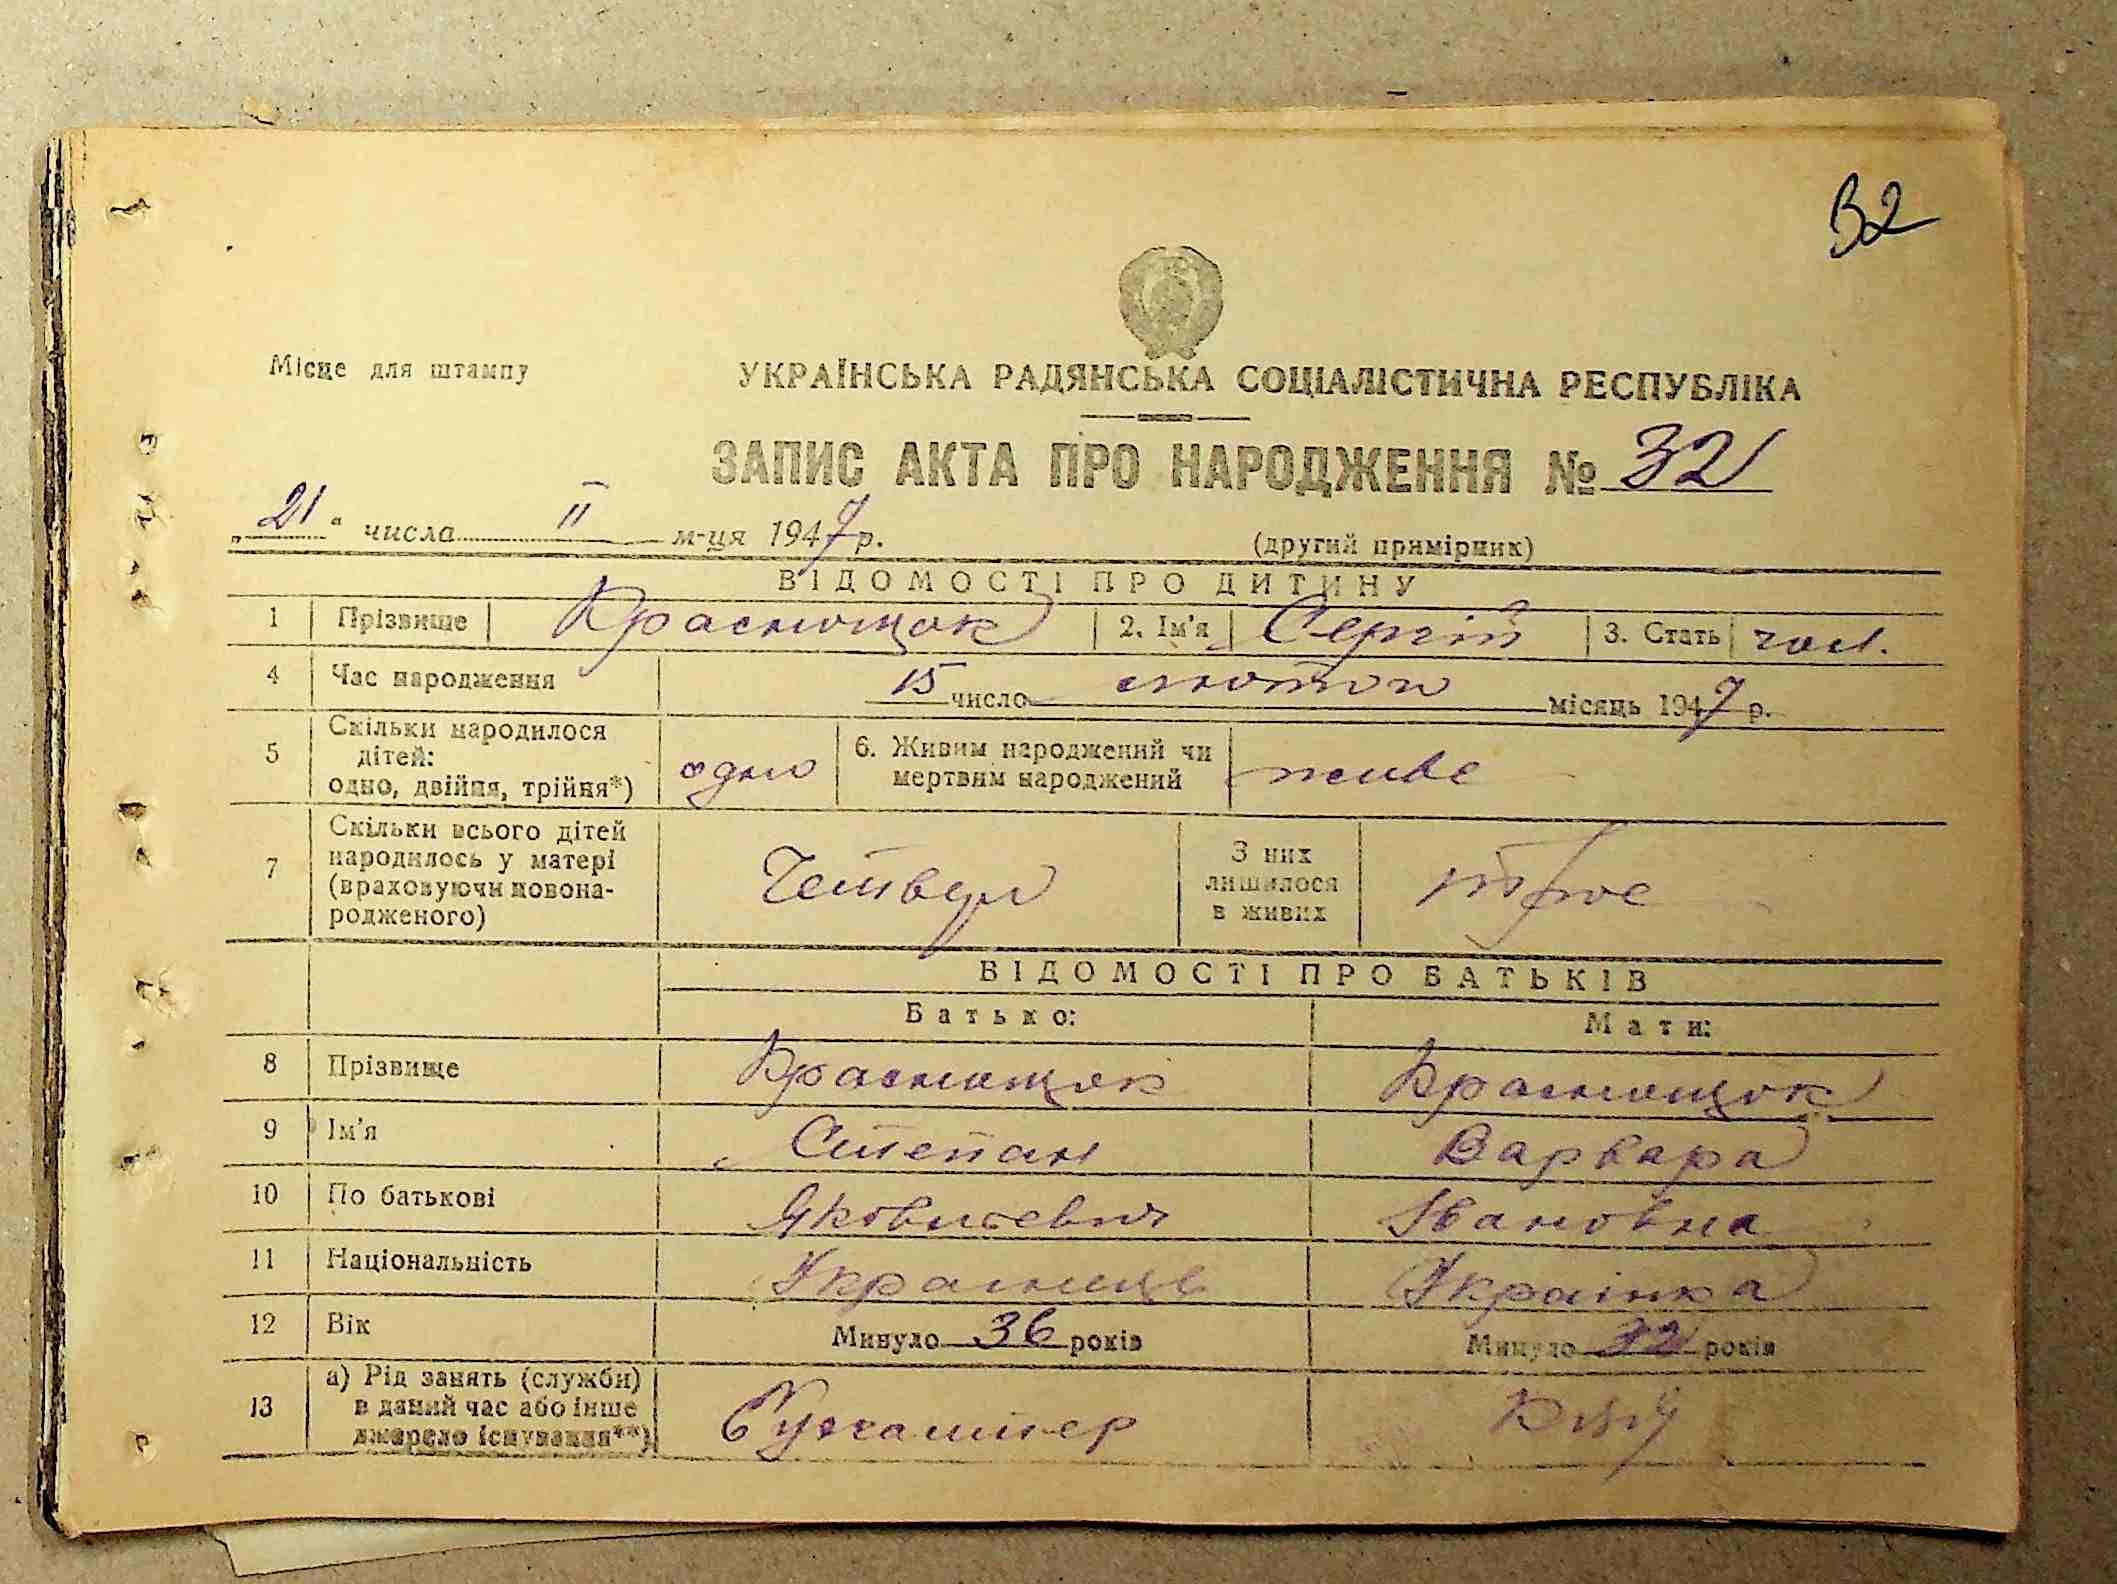 32
Місце для штампу
УКРАЇНСЬКА РАДЯНСЬКА СОЦІАЛІСТИЧНА РЕСПУБЛІКА
ЗАПИС АКТА ПРО НАРОДЖЕННЯ № 32
„21“ числа II м-ця 1947 р.
(другий примірник)
ВІДОМОСТІ ПРО ДИТИНУ
1 Прізвище Краснощок 2. Ім'я Сергій 3. Стать чол.
4 Час народження 15 число лютого місяць 1947 р.
5 Скільки народилося дітей: одно, двійня, трійня*) одно 6. Живим народжений чи мертвим народжений живе
7 Скільки всього дітей народилось у матері (враховуючи новонародженого) Четверо З них лишилося в живих троє
ВІДОМОСТІ ПРО БАТЬКІВ
Батько: Мати:
8 Прізвище Краснощок Краснощок
9 Ім'я Степан Варвара
10 По батькові Якович Івановна
11 Національність Українець Українка
12 Вік Минуло 36 років Минуло 32 років
13 а) Рід занять (служби) в даний час або інше джерело існування**) Бухгалтер